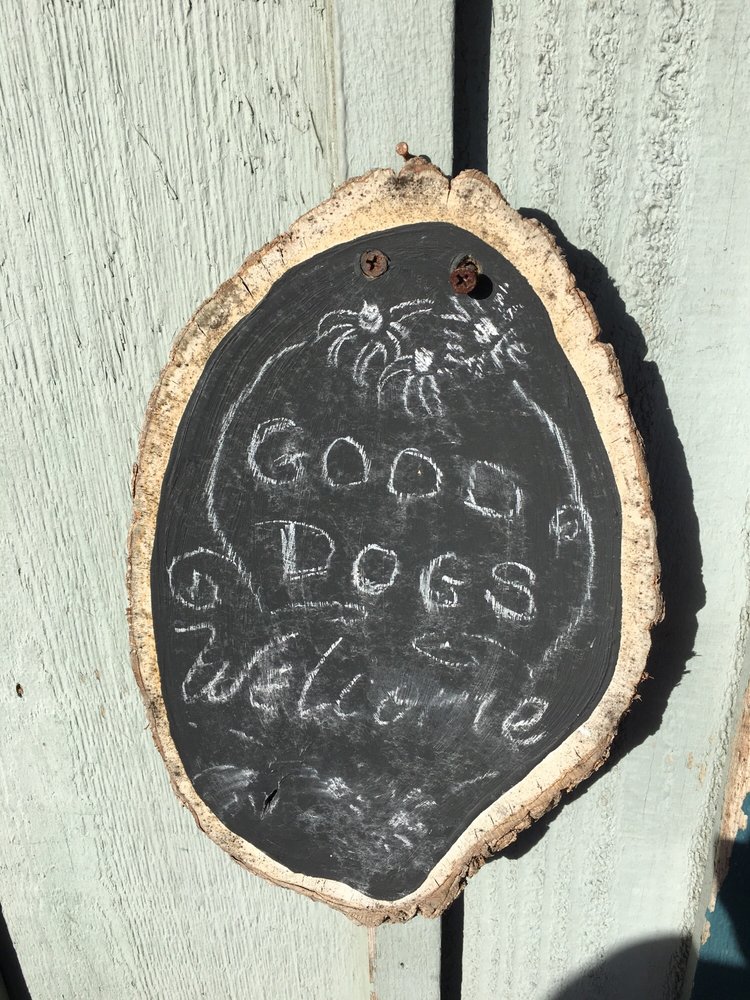 GOOD
DOGS
WElcome